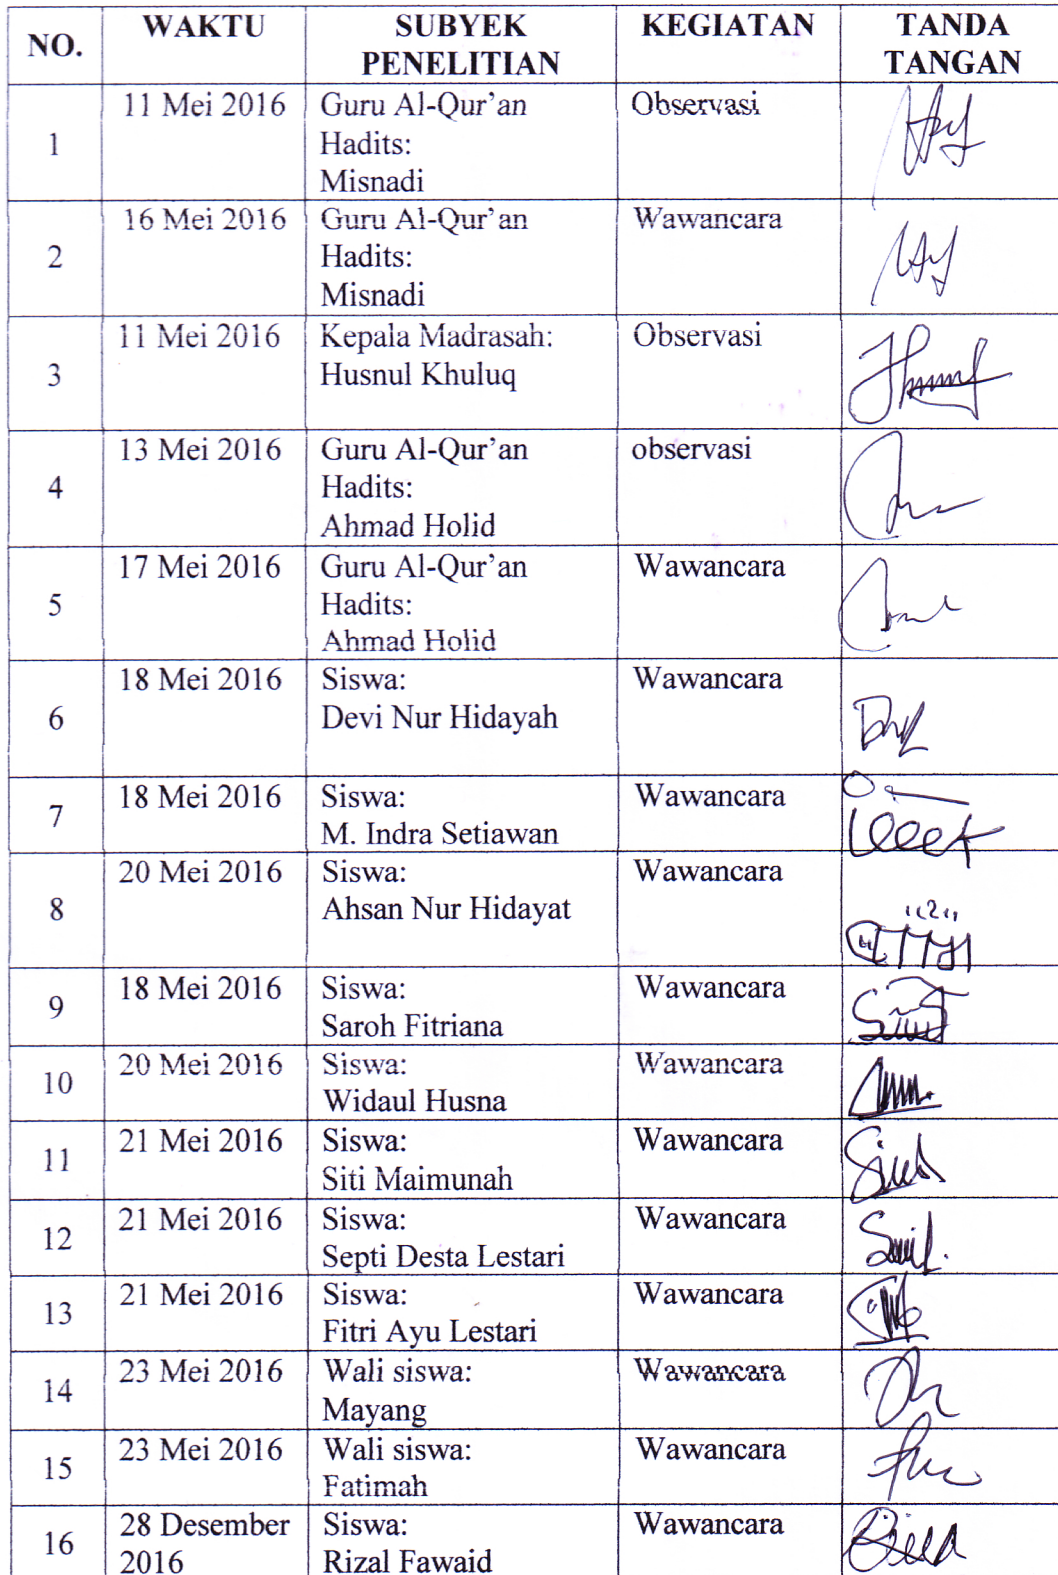 NO.
WAKTU
SUBYEK
PENELITIAN
KEGIATAN
TANDA
TANGAN
1
11 Mei 2016
Guru Al-Qur'an
Hadits:
Misnadi
Observasi
2
16 Mei 2016
Guru Al-Qur'an
Hadits:
Misnadi
Wawancara
3
11 Mei 2016
Kepala Madrasah:
Husnul Khuluq
Observasi
4
13 Mei 2016
Guru Al-Qur'an
Hadits:
Ahmad Holid
observasi
5
17 Mei 2016
Guru Al-Qur'an
Hadits:
Ahmad Holid
Wawancara
6
18 Mei 2016
Siswa:
Devi Nur Hidayah
Wawancara
7
18 Mei 2016
Siswa:
M. Indra Setiawan
Wawancara
8
20 Mei 2016
Siswa:
Ahsan Nur Hidayat
Wawancara
9
18 Mei 2016
Siswa:
Saroh Fitriana
Wawancara
10
20 Mei 2016
Siswa:
Widaul Husna
Wawancara
11
21 Mei 2016
Siswa:
Siti Maimunah
Wawancara
12
21 Mei 2016
Siswa:
Septi Desta Lestari
Wawancara
13
21 Mei 2016
Siswa:
Fitri Ayu Lestari
Wawancara
14
23 Mei 2016
Wali siswa:
Mayang
Wawancara
15
23 Mei 2016
Wali siswa:
Fatimah
Wawancara
16
28 Desember
2016
Siswa:
Rizal Fawaid
Wawancara